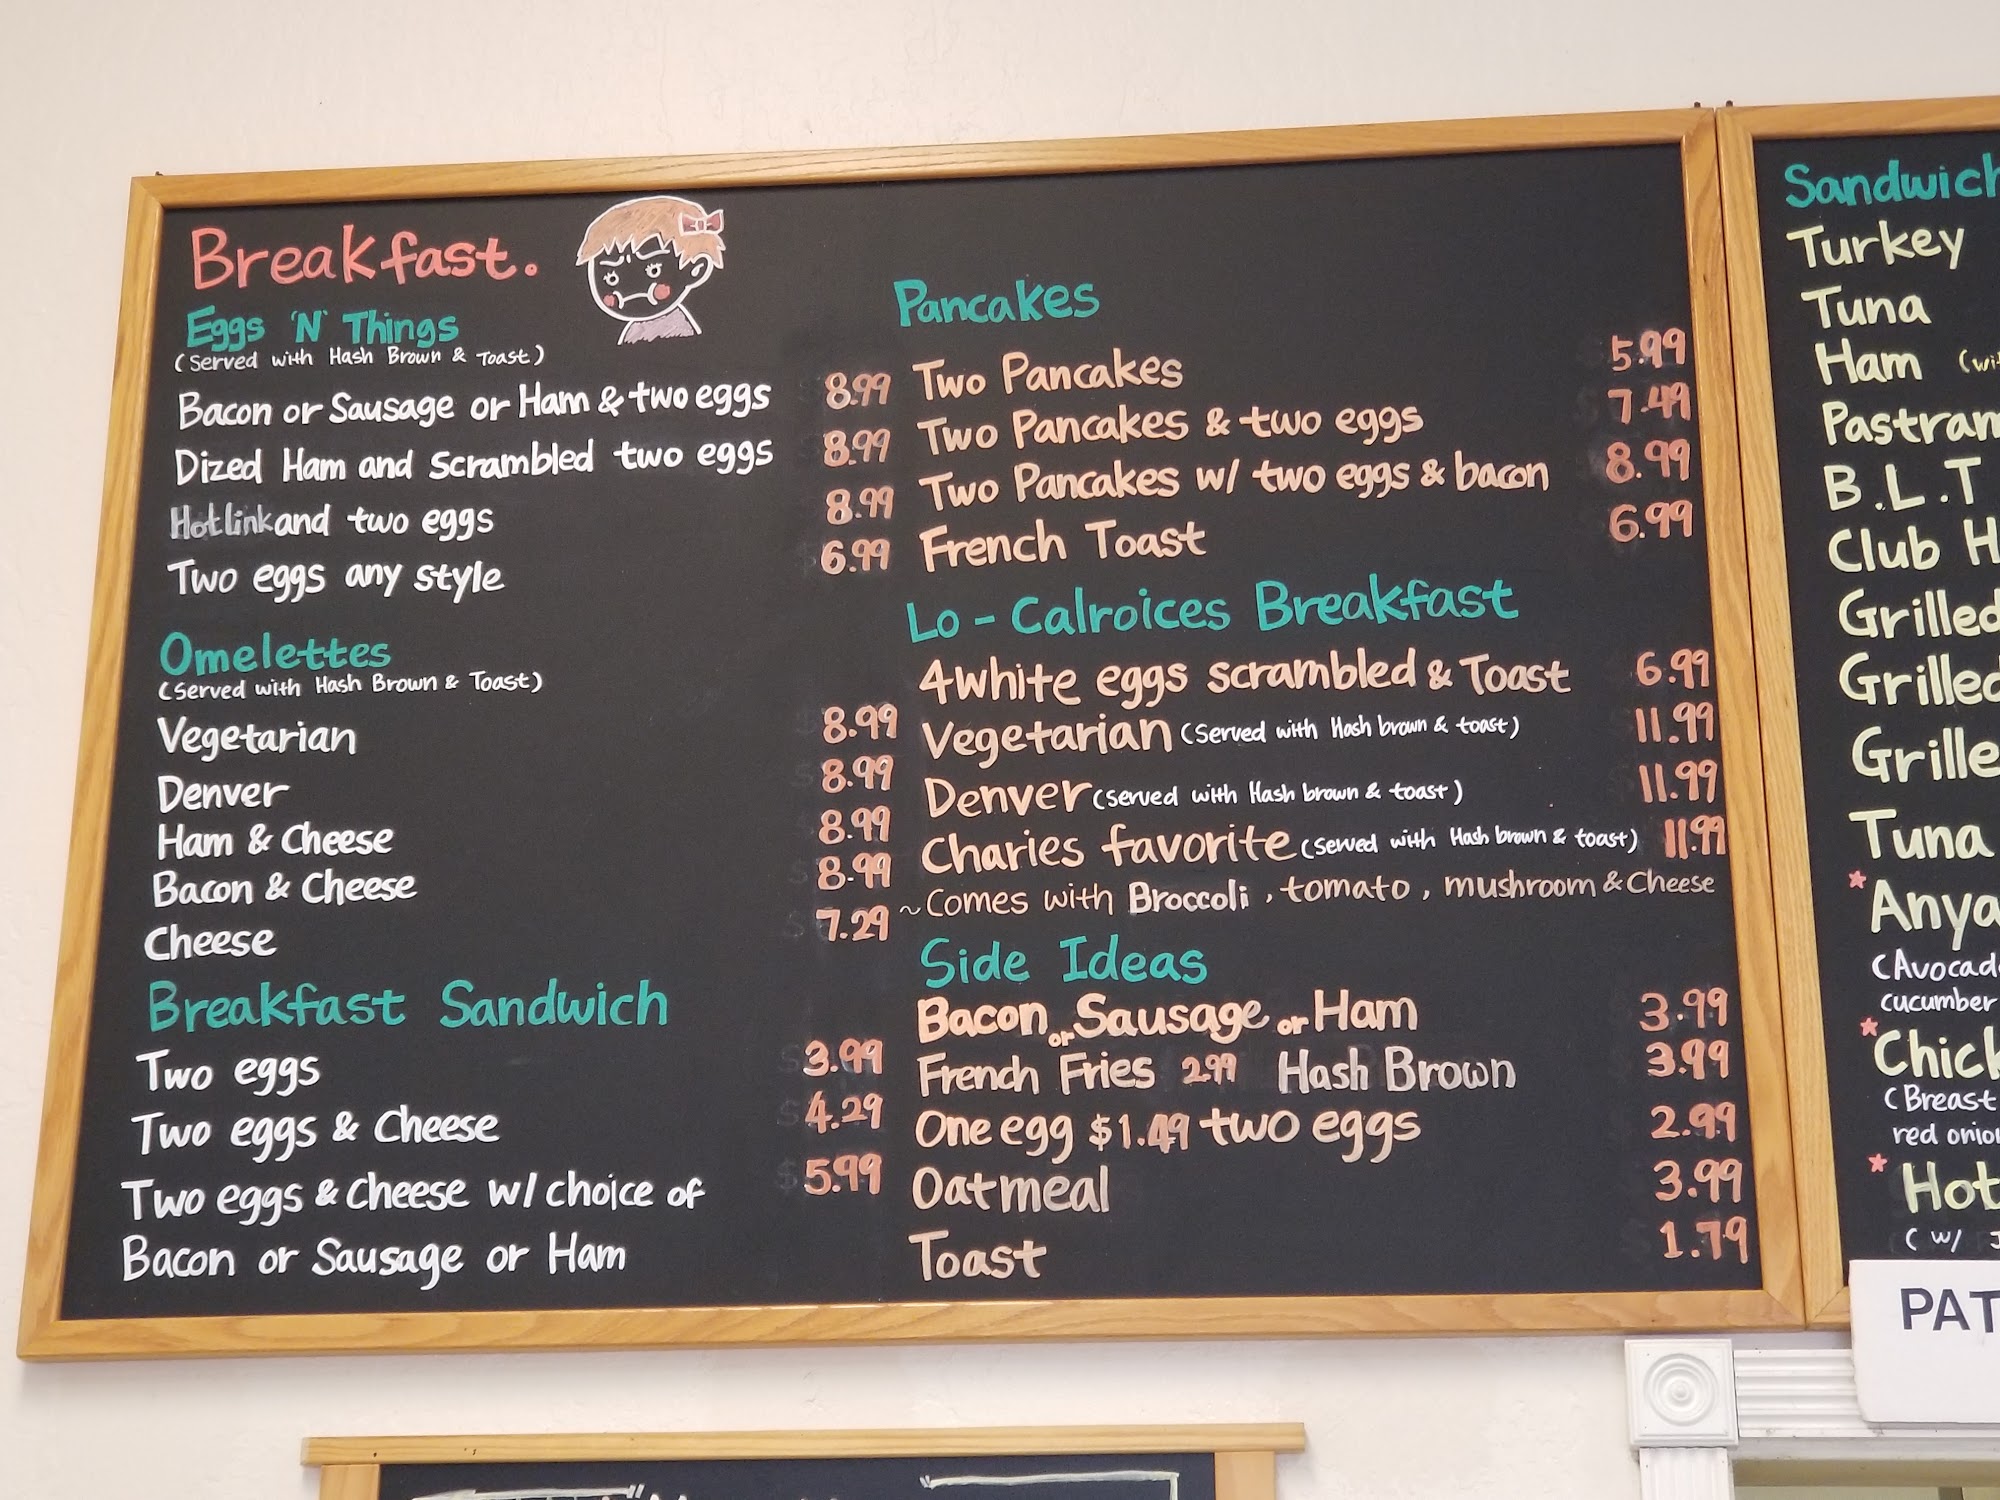 Breakfast.
Eggs 'N' Things
(Served with Hash Brown & Toast)
Bacon or Sausage or Ham & two eggs 8.99
Dized Ham and scrambled two eggs 8.99
Hotlink and two eggs 8.99
Two eggs any style 6.99
Omelettes
(Served with Hash Brown & Toast)
Vegetarian 8.99
Denver 8.99
Ham & Cheese 8.99
Bacon & Cheese 8.99
Cheese 7.29
Breakfast Sandwich
Two eggs 3.99
Two eggs & Cheese 4.29
Two eggs & Cheese w/ choice of 5.99
Bacon or Sausage or Ham
Pancakes
Two Pancakes 5.99
Two Pancakes & two eggs 7.49
Two Pancakes w/ two eggs & bacon 8.99
French Toast 6.99
Lo - Calroices Breakfast
4 White eggs scrambled & Toast 6.99
Vegetarian (Served with Hash brown & toast) 11.99
Denver (served with Hash brown & toast) 11.99
Charies favorite (Served with Hash brown & toast) 11.99
~ Comes with Broccoli, tomato, mushroom & Cheese
Side Ideas
Bacon or Sausage or Ham 3.99
French Fries 2.99 Hash Brown 3.99
One egg $1.49 two eggs 2.99
Oatmeal 3.99
Toast 1.79
Sandwich
Turkey
Tuna
Ham
B.L.T
Club
Grilled
Grilled
Tuna
(Breast
Hot
(w/